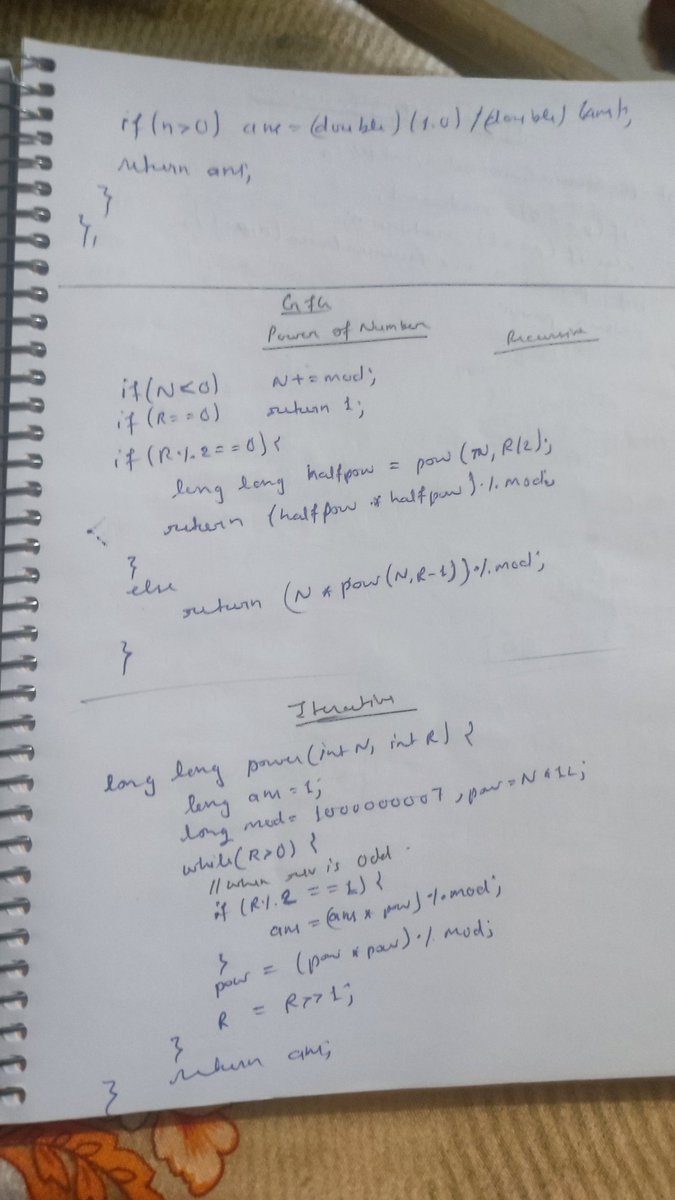 if(n>0) ans = (double)(1.0) / (double) (ans);
return ans;
}
};
GfG
Power of Number
Recursive
if(N<0) N+=mod;
if(R==0) return 1;
if(R%2==0){
long long halfpow = pow(N, R/2);
return (halfpow * halfpow)%mod;
}
else
return (N * pow(N,R-1))%mod;
}
Iterative
long long power(int N, int R) {
long ans=1;
long mod= 1000000007, pow=N*1L;
while(R>0) {
// when rev is odd.
if (R%2 == 1) {
ans = (ans * pow)%mod;
}
pow = (pow * pow)%mod;
R = R>>1;
}
return ans;
}